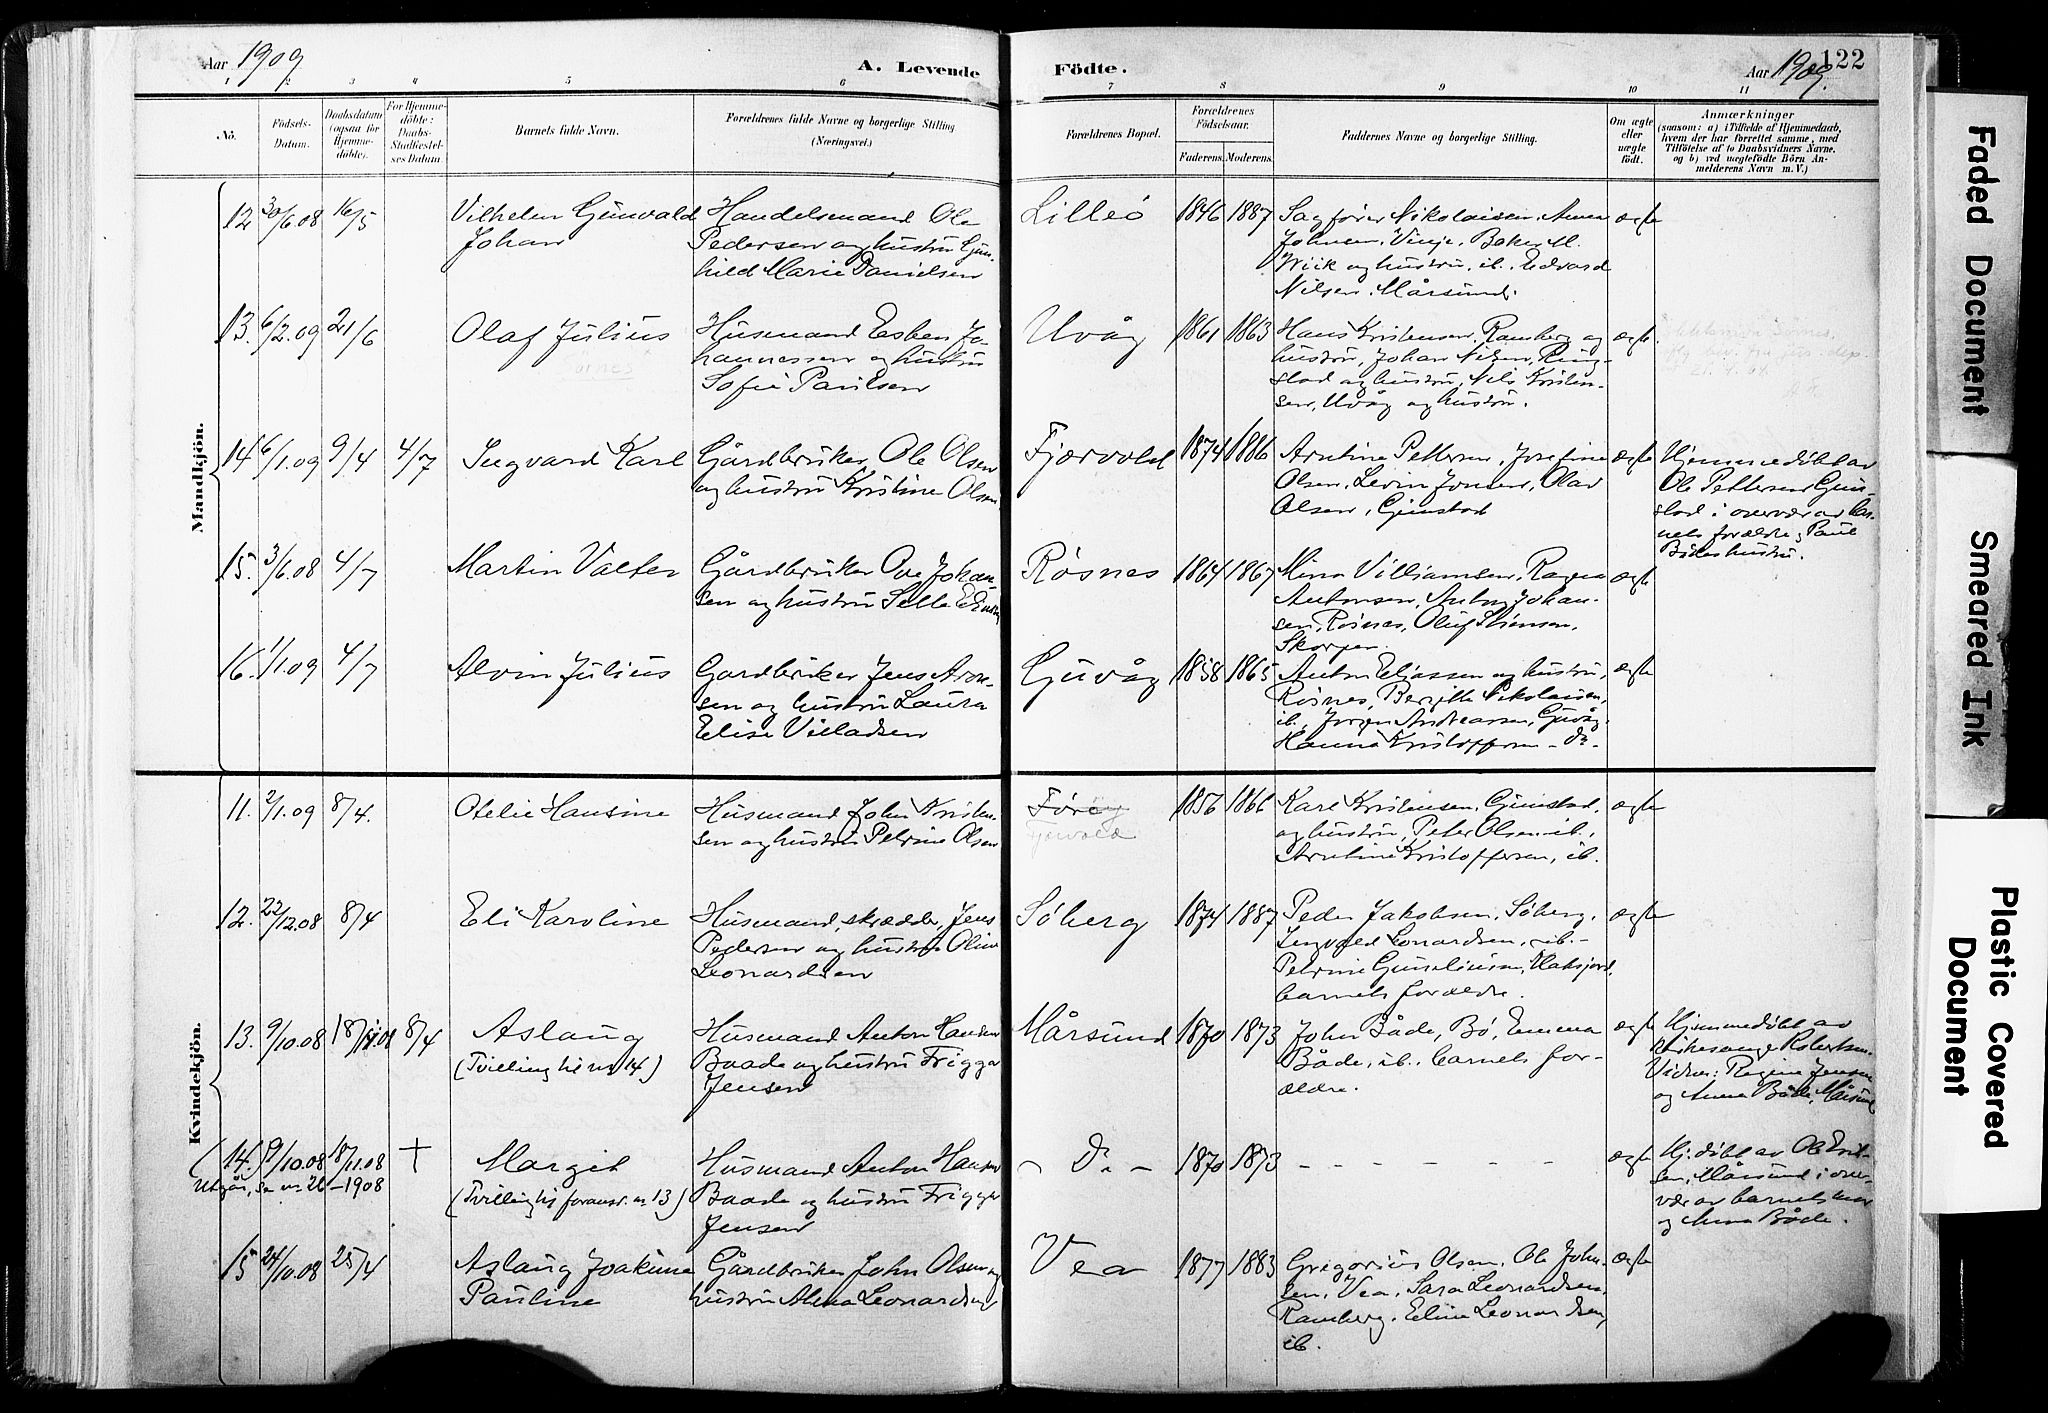 Aar 1909
A. Levende
Födte.
Aar 1909.
122
1 2 3 4 5 6 7 8 9 10 11
No.
Födsels-
Datum.
Daabsdatum
(ogsaa for
Hjemme-
döbte).
For Hjemme-
döbte:
Daabs-
Stadfæstel-
ses Datum.
Barnets fulde Navn.
Forældrenes fulde Navne og borgerlige Stilling
(Næringsvei.)
Forældrenes Bopæl.
Forældrenes
Födselsaar.
Faderens.
Moderens.
Faddernes Navne og borgerlige Stilling.
Om ægte
eller
uægte
födt.
Anmærkninger
(saasom: a) i Tilfælde af Hjemmedaab,
hvem der har forrettet samme, med
Tilföielse af to Daabsvidners Navne,
og b) ved uægtefödte Börn An-
melderens Navn m. V.)
Mandkjön.
12 30/6.08 16/5
Vilhelm Gunvald
Johan
Handelsmand Ole
Pedersen og hustru Gun-
hild Marie Danielsen
Lilleö 1846 1887
Sagfører Nikolaisen, Anna
Johnsen, Vinje, Baker M.
Wiik og hustru, ib. Edvard
Nilsen, Mårsund.
ægte
13. 6/2.09 21/6
Olaf Julius
Husmand Esben Jo-
hannessen og hustru
Sofie Paulsen
Uvåg 1861 1863
Hans Kristensen, Ramberg og
hustru, Johan Nilsen, Ring-
stad og hustru, Nils Kristen-
sen, Uvåg og hustru.
ægte
14 6/1.09 9/4 4/7
Ingvard Karl
Gårdbruker Ole Olsen
og hustru Kristine Olsen
Fjærvold 1874 1886
Arntine Pettersen, Josefine
Olsen, Levin Jonsen, Olav
Olsen, Gimstad
ægte
Hjemmedøbt av
Ole Pettersen Gim-
stad i overvær av bar-
nets forældre, Paul
Bådes hustru.
15. 3/6.08 4/7
Martin Valter
Gårdbruker Ove Johan-
sen og hustru
Røsnes 1864 1867
Mina Villiamsen, Ragna
Antonsen, Anton Johan-
sen, Røsnes, Oluf Sørensen,
Skorpen.
ægte
16. 1/1.09 4/7
Alvin Julius
Gårdbruker Jens Aron-
sen og hustru Laura
Elise Villadsen
Guvåg 1858 1865
Anton Eliassen og hustru,
Røsnes, Beritte Nikolaisen,
ib., Jørgen Andreassen, Guvåg.
Hanna Kristoffersen - do -
ægte
Kvindekjön.
11. 2/1.09 8/4.
Otelie Hansine
Husmand John Kristen-
sen og hustru Petrine Olsen
Førøy
Fjærvold
1856 1866
Karl Kristensen, Gimstad,
og hustru, Peter Olsen ib.,
Arntine Kristoffersen, ib.
ægte
12. 22/12.08 8/4
Eli Karoline
Husmand, skrædder Jens
Pedersen og hustru Oline
Leonardsen
Søberg 1874 1887
Peder Jakobsen, Søberg,
Ingvald Leonardsen, -ib.-
Petrine
barnets forældre.
ægte
13. 9/10.08 18/11.08 8/4
Aslaug
(Tvilling til nr 14.)
Husmand Anton Hansen
Baade og hustru Frigga
Jensen
Mårsund 1870 1873
John Både, Bø, Emma
Både, ib., barnets for-
ældre.
ægte
Hjemmedøbt av
Robertsen.
Vidner: Regine Jensen
og Anna Både, Mårsund
14. 9/10.08 18/11.08 †
Utgår, se nr 26 - 1908
Margit
(Tvilling til foranst. nr 13)
Husmand Anton Hansen
Baade og hustru Frigga
Jensen
- Do - 1870 1873
- - - - - -
ægte
Hj. døbt av Ole Erik-
sen, Mårsund i over-
vær av barnets mor
og Anna Både.
15 24/10.08 25/4
Aslaug Joakime
Pauline
Gårdbruker John Olsen og
hustru Alma Leonardsen
Vea 1877 1883
Gregorius Olsen, Ole John-
sen, Vea, Sara Leonardsen,
Ramberg, Eline Leonardsen,
ib.
ægte
Faded Document
Smeared Ink
Plastic Covered
Document